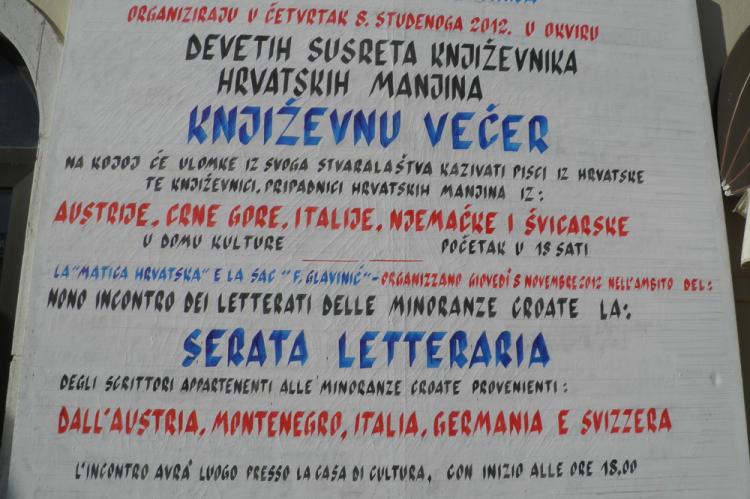 ORGANIZIRAJU U ČETVRTAK 8. STUDENOGA 2012. U OKVIRU
DEVETIH SUSRETA KNJIŽEVNIKA
HRVATSKIH MANJINA
KNJIŽEVNU VEČER
NA KOJOJ ĆE ULOMKE IZ SVOGA STVARALAŠTVA KAZIVATI PISCI IZ HRVATSKE
TE KNJIŽEVNICI, PRIPADNICI HRVATSKIH MANJINA IZ:
AUSTRIJE, CRNE GORE, ITALIJE, NJEMAČKE I ŠVICARSKE
U DOMU KULTURE POČETAK U 18 SATI
LA "MATICA HRVATSKA" E LA SAC "F. GLAVINIĆ" - ORGANIZZANO GIOVEDÌ 8 NOVEMBRE 2012 NELL'AMBITO DEL:
NONO INCONTRO DEI LETTERATI DELLE MINORANZE CROATE LA:
SERATA LETTERARIA
DEGLI SCRITTORI APPARTENENTI ALLE MINORANZE CROATE PROVENIENTI:
DALL'AUSTRIA, MONTENEGRO, ITALIA, GERMANIA E SVIZZERA
L'INCONTRO AVRA' LUOGO PRESSO LA CASA DI CULTURA, CON INIZIO ALLE ORE 18,00